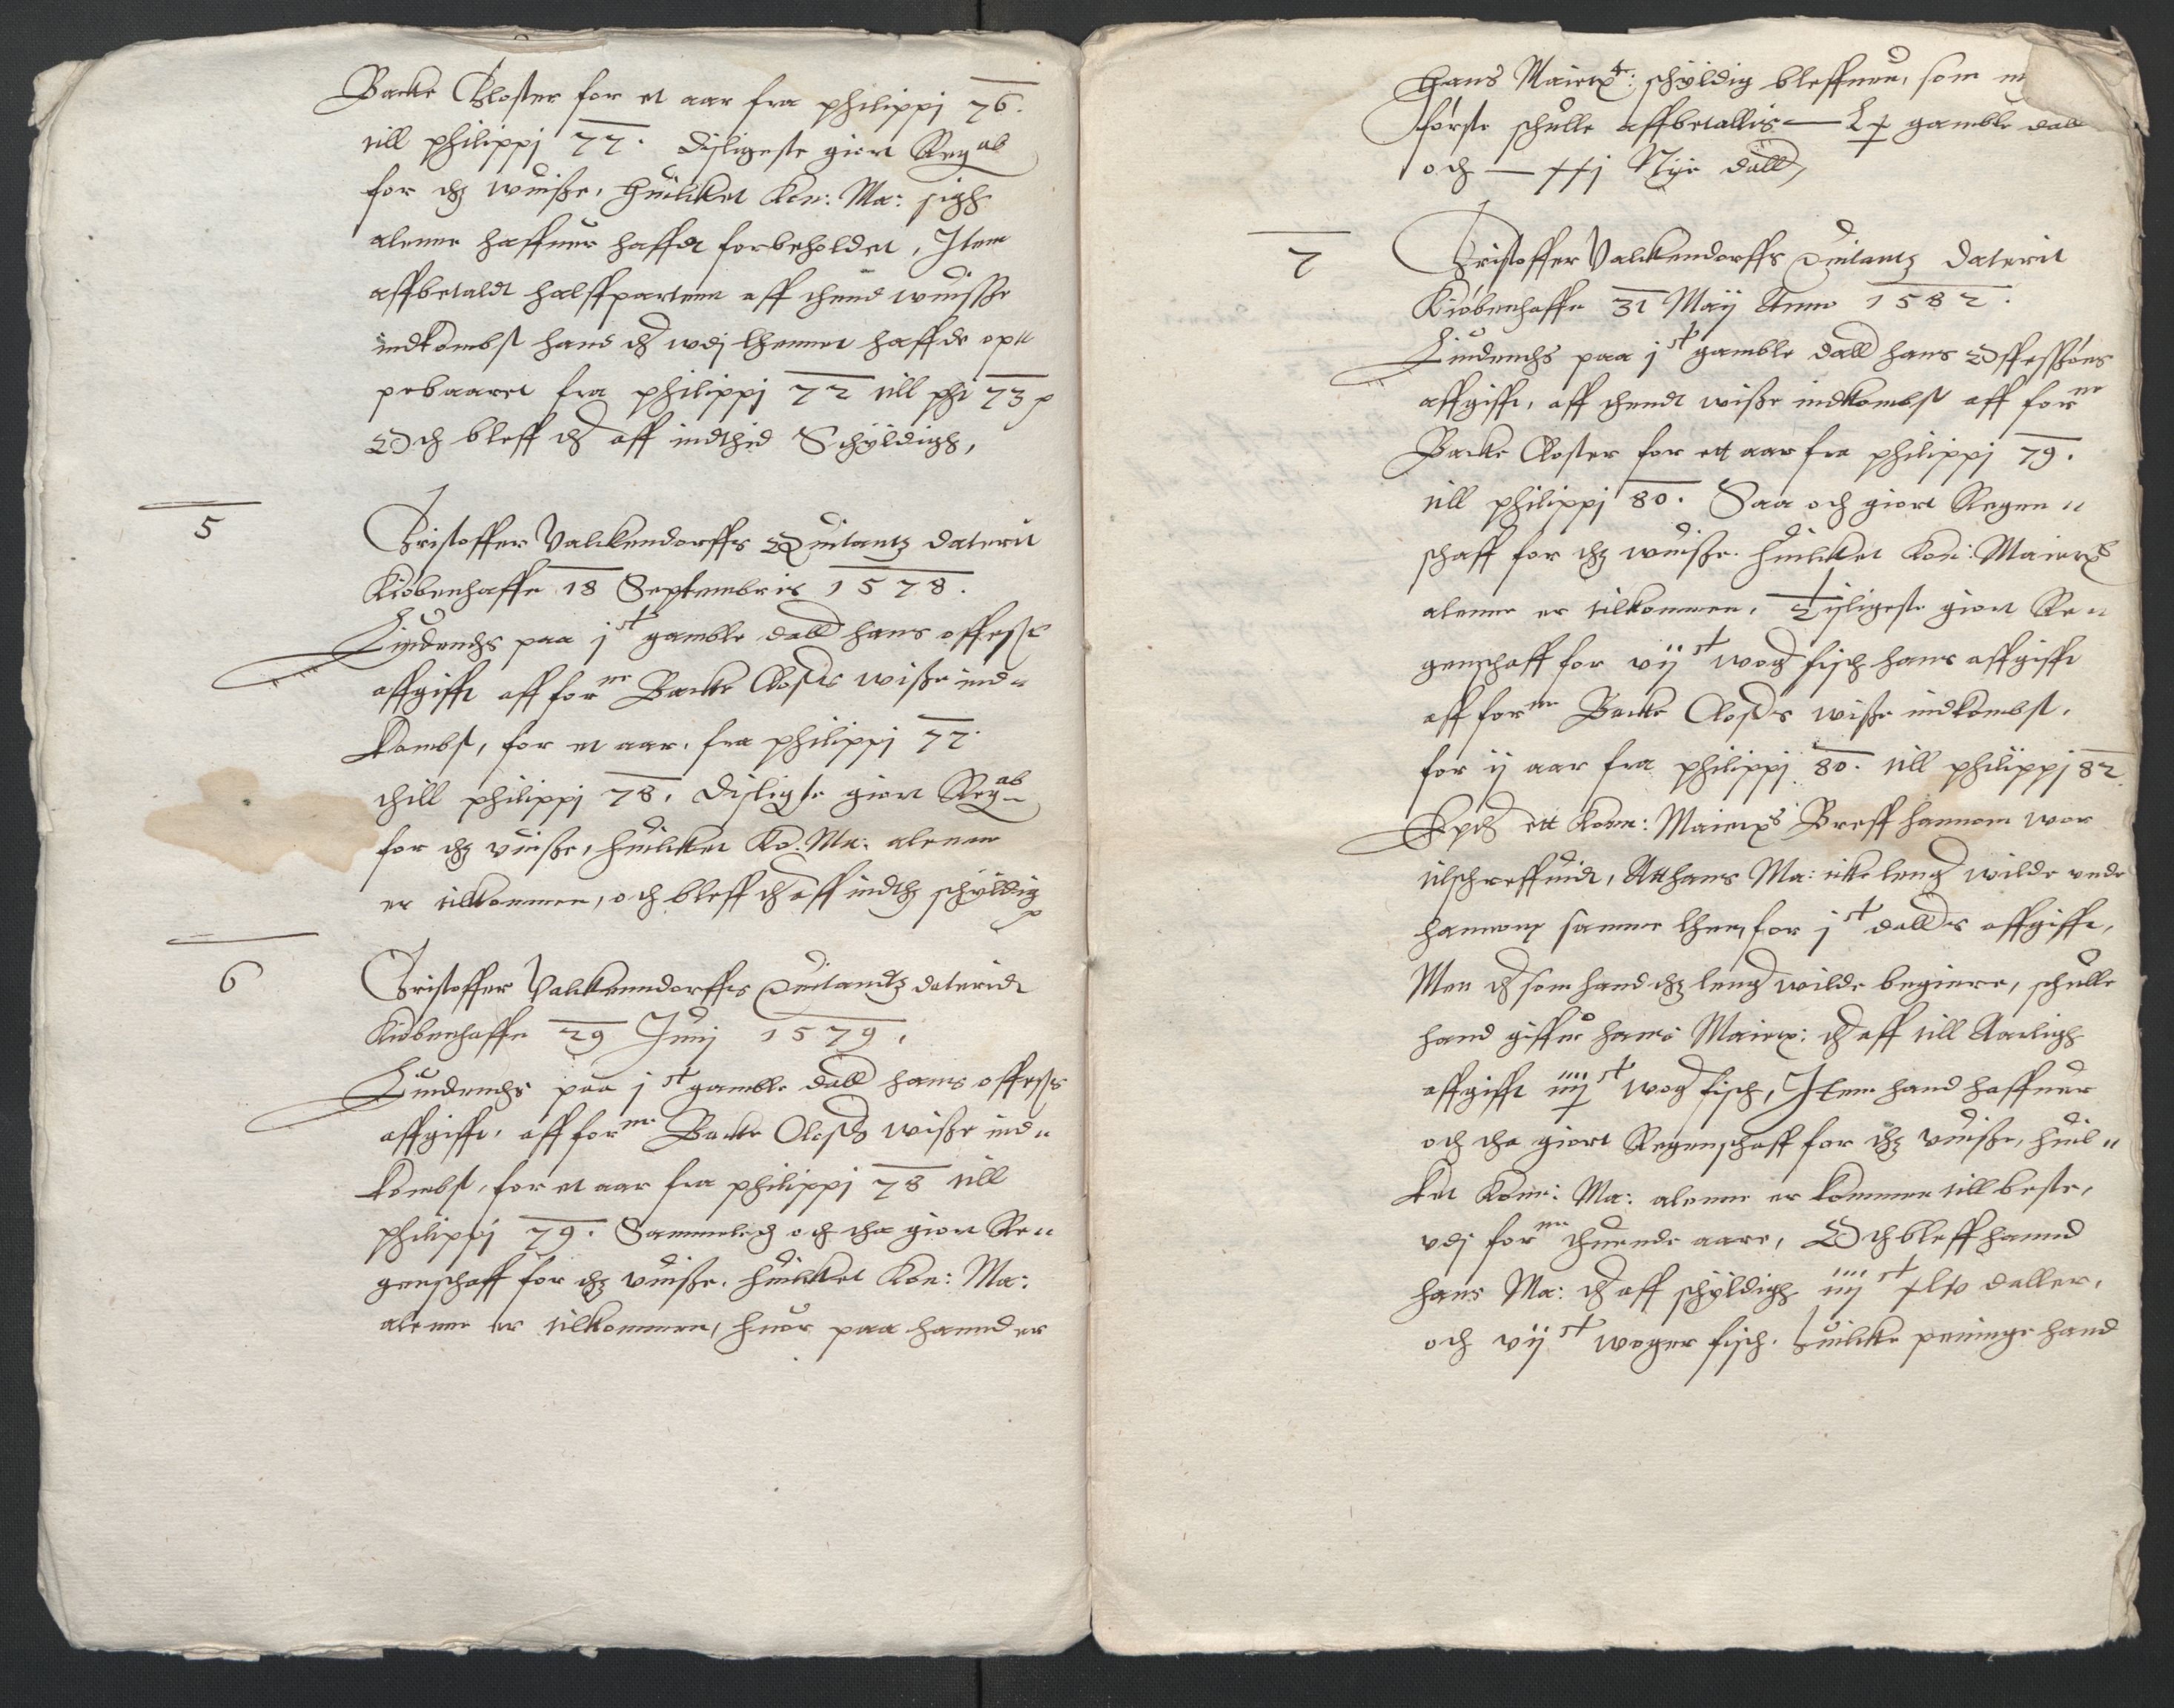 Backe Closter for et aar fra philippj 76.
till philippj 77. Disligeste giort Regab
for thz wuisße, Huilcket Kon: Ma: sigh
alenne haffuer haffdt forbeholdet, Item
affbetaldt halffparten aff thend wuisße
indkombst hand th wdj lhennet haffde op„
pebaaret fra philippj 72 till phi 73
Och bleff th aff indthid Schyldigh,
5
Christoffer Valckendorffs Quitantz daterit
Kiøbenhaffn 18 Septembris 1578.
Liudendhs paa jst gamble dall hans affgifft
affgifft aff forne Backe Closters wisße ind„
kombst, for et aar, fra philippj 77
thill philippj 78, Disligste giort Regab
for thz wuisße, huilcket Ko. Ma: alenne
er tilkommen, och bleff th aff indthz schyldig
6
Christoffer Valckenndorffs Quitandtz dateridt
Kiøbenhaffn 29 Junj 1579,
Liudendhs paa jst gamble dall hans
affgifft, aff forne Backe Closters wisße ind„
kombst, for et aar fra philippj 78 till
philippj 79. Sammeledh och tha giort Re„
genschaff for thz wuisße, huilcket Kon: Ma:
alenne er tilkommen, huor paa hannd er
hans Maiertt: schyldig bleffuen, som
første schulle affbetallis — Lx gamble dall
och — xxj Nye dall,
7
Christoffer Valckendorffs Quitantz Daterit
Kiøbenhaffn 31 Maij Anno 1582.
Liudendhs paa jst gamble dall hans
affgifft, aff thendt wisße indkombst aff forne
Backe Closter for ett aar fra philippj 79.
till philippj 80. Saa och giort Regen„
schaff for thz wuisße. Huilcket Kon: Maiertt
alenne er tilkommen, Disligeste giort Re„
genschaff for vijst wog fisch hans affgifft
aff forne Backe Closters wisße indkombst,
for ij aar fra philippj 80. till philippj 82.
Epther ett Konn: Maiertts Breff hannom wor
tilschreffuidt, Att hans Ma: icke lengr wilde vnde
hannom samme lhen, for jst dallers affgifft,
Men th som hand thz lengr wilde begiere, schulle
hand giffue hans Maiertt: th aff till Aarligh
affgifft iiijst wog fisch, Item hand haffuer
och tha giort Regenschaff for thz wuisße, huil„
ket Konn: Ma: alenne er kommen till beste,
vdj forne thuende aare, Och bleff hannd
hans Ma: th aff schyldigh iiijst xlv daller,
och vijst woger fisch. Huilcke peninge hand